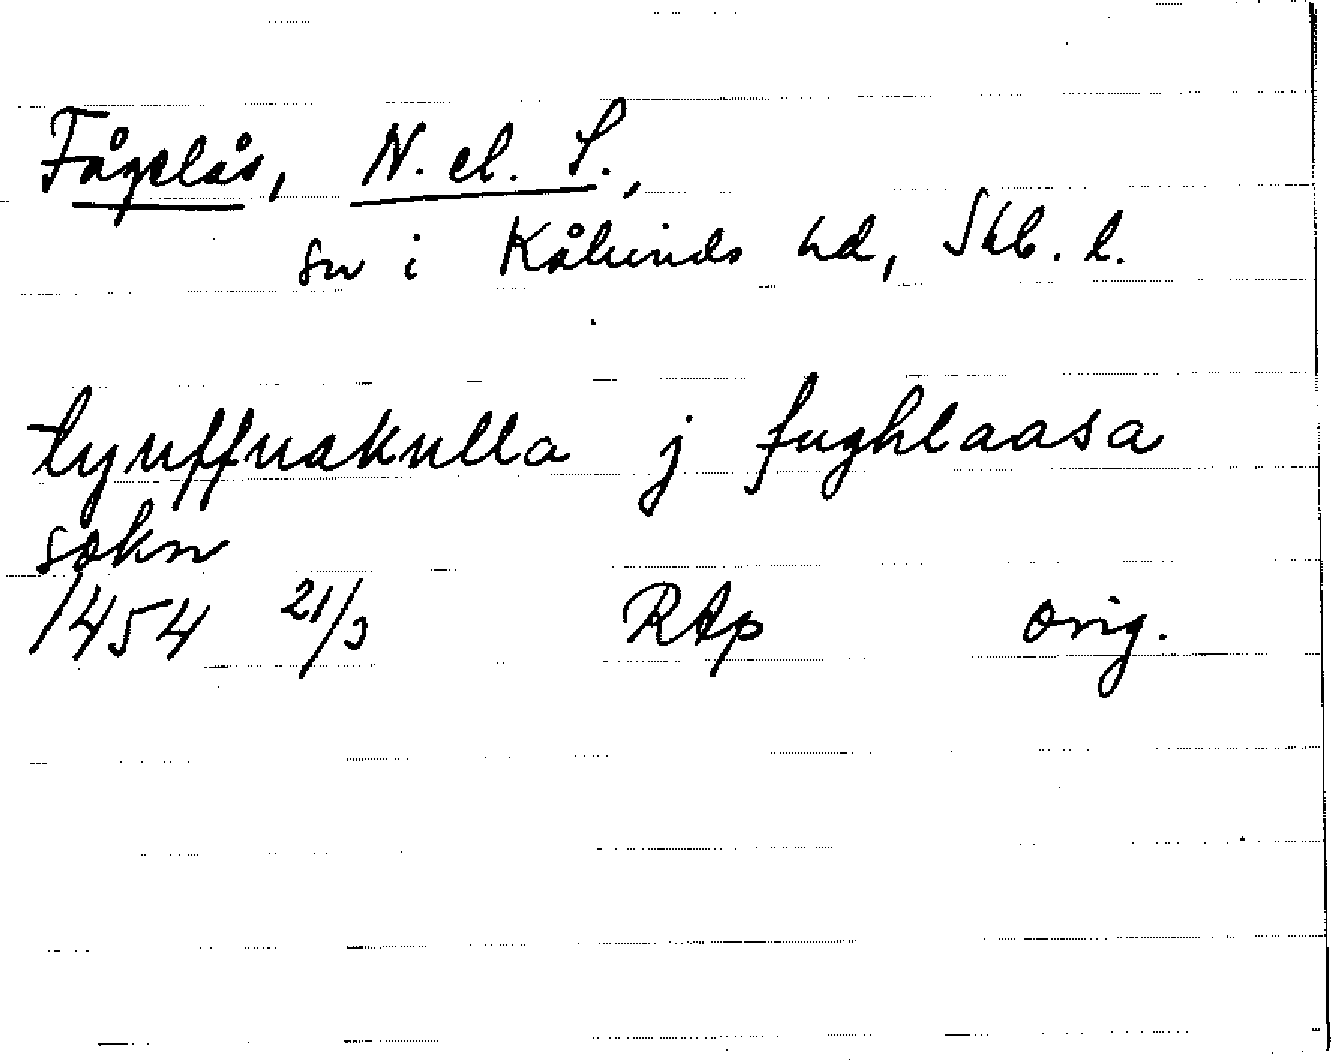 Fågelås, N. el. S.,
sn i Kåkinds hd, Skb. l.
tyuffuakulla j fughlaasa
sokn
1454 21/3 RAp orig.